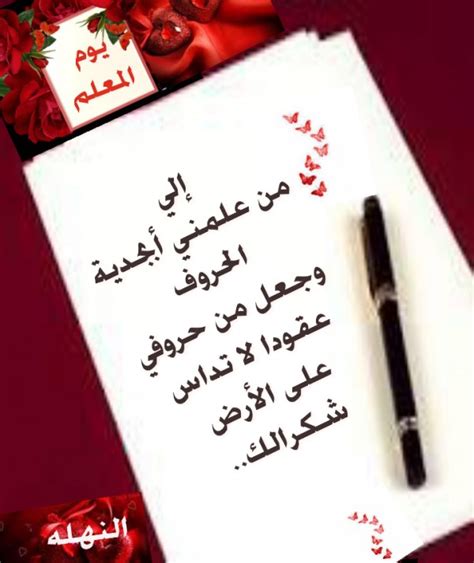 يوم
المعلم
إلي
من علمني أبجدية
الحروف
وجعل من حروفي
عقودا لا تداس
على الأرض
شكرالك..
النهله